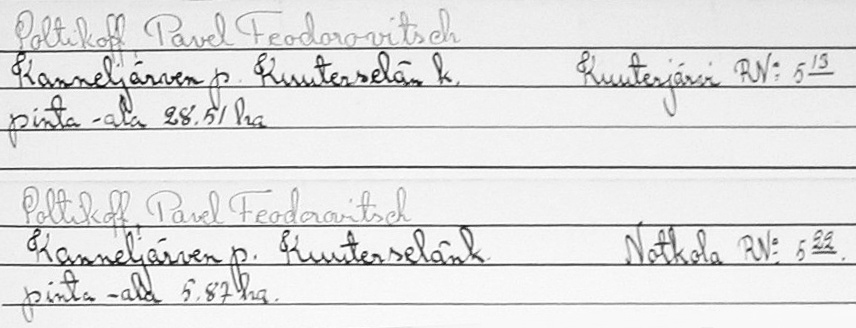 Poltikoff, Pavel Feodorovitsch
Kanneljärven p. Kuuterselän k. Kuuterjärvi RN: 5 13
pinta-ala 28.51 ha
Poltikoff, Pavel Feodorovitsch
Kanneljärven p. Kuuterselän k. Notkola RN: 5 22.
pinta-ala 5.87 ha.